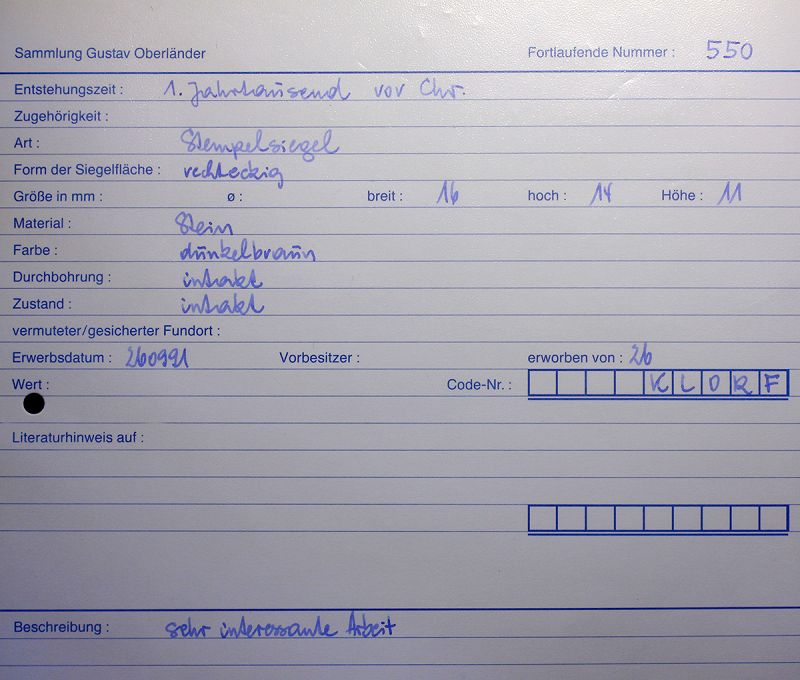 Sammlung Gustav Oberländer Fortlaufende Nummer : 550
Entstehungszeit : 1. Jahrtausend vor Chr.
Zugehörigkeit :
Art : Stempelsiegel
Form der Siegelfläche : rechteckig
Größe in mm : ø : breit : 16 hoch : 14 Höhe : 11
Material : Stein
Farbe : dunkelbraun
Durchbohrung : intakt
Zustand : intakt
vermuteter/gesicherter Fundort :
Erwerbsdatum : 260991 Vorbesitzer : erworben von : 26
Wert : Code-Nr. : KLORF
Literaturhinweis auf :
Beschreibung : sehr interessante Arbeit